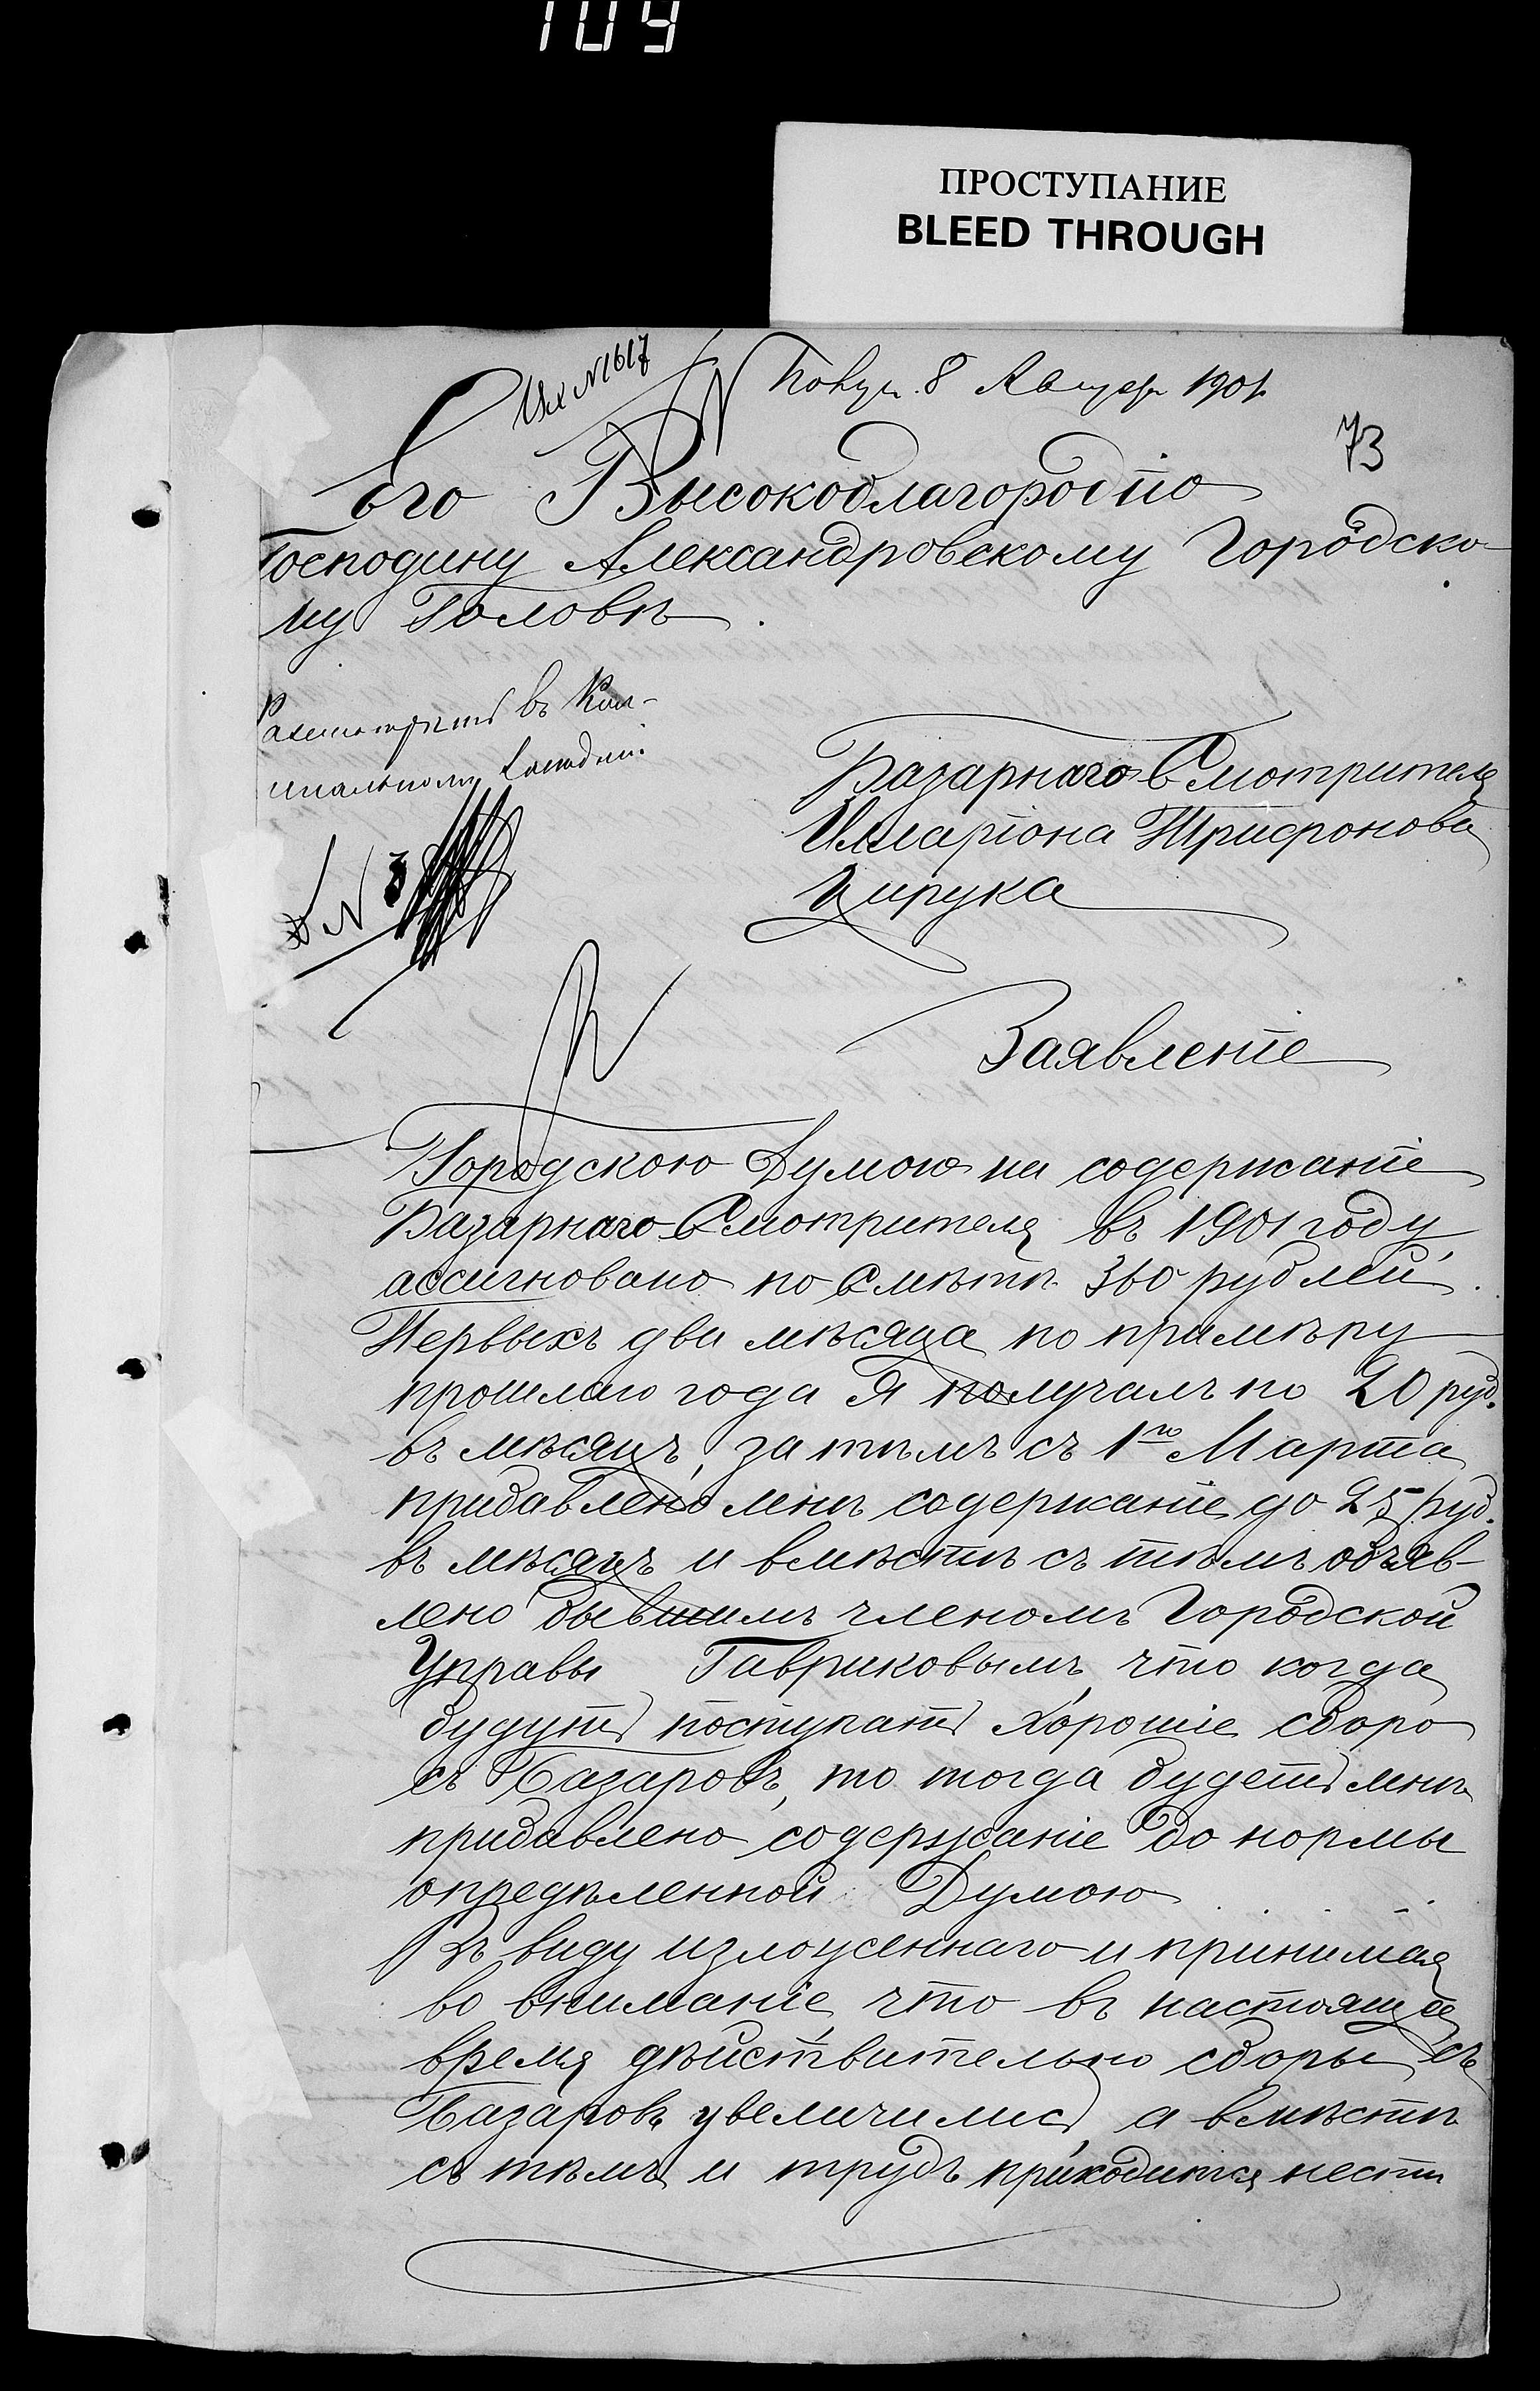 109
ПРОСТУПАНИЕ
BLEED THROUGH
Вх №1617
Получ. 8 Август 1901
73
Его Высокоблагородію
Господину Александровскому Городско-
му Головѣ.
Разсмотрѣть въ Ком-
№ 3
Базарнаго Смотрителя
Иларіона Трифонова
Цирука
Заявленіе
Городскою Думою на содержаніе
Базарнаго Смотрителя въ 1901 году
ассигновано по Смѣтѣ 360 рублей.
Первыхъ два мѣсяца по примѣру
прошлаго года Я получалъ по 20 руб.
въ мѣсяцъ, за тѣмъ съ 1го Марта
прибавлено мнѣ содержаніе до 25 руб.
въ мѣсяцъ и вмѣстѣ съ тѣмъ объяв-
лено бывшимъ членомъ Городской
Управы Гавриковымъ, что когда
будутъ поступать хорошіе сборо
съ Базаровъ, то тогда будетъ мнѣ
прибавлено содержаніе до нормы
опредѣленной Думою
Въ виду изложеннаго и принимая
во вниманіе, что въ настоящее
время дѣйствительно сборы съ
Базаровъ увеличились, а вмѣстѣ
съ тѣмъ и трудъ приходится нести